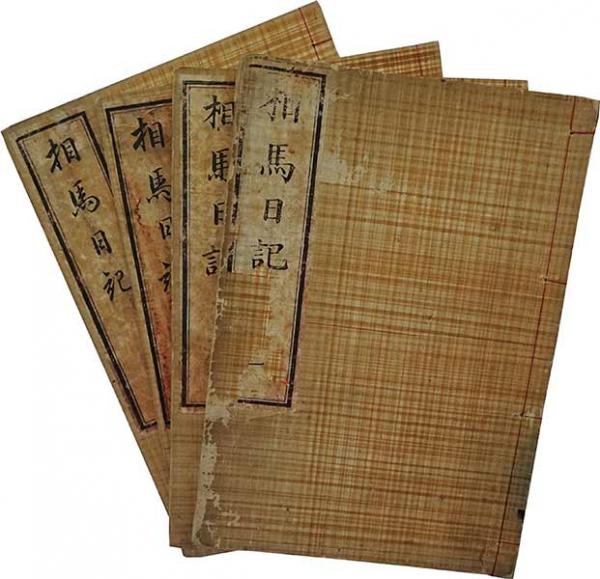 相馬日記 一
相馬日記
相馬日記
相馬日記